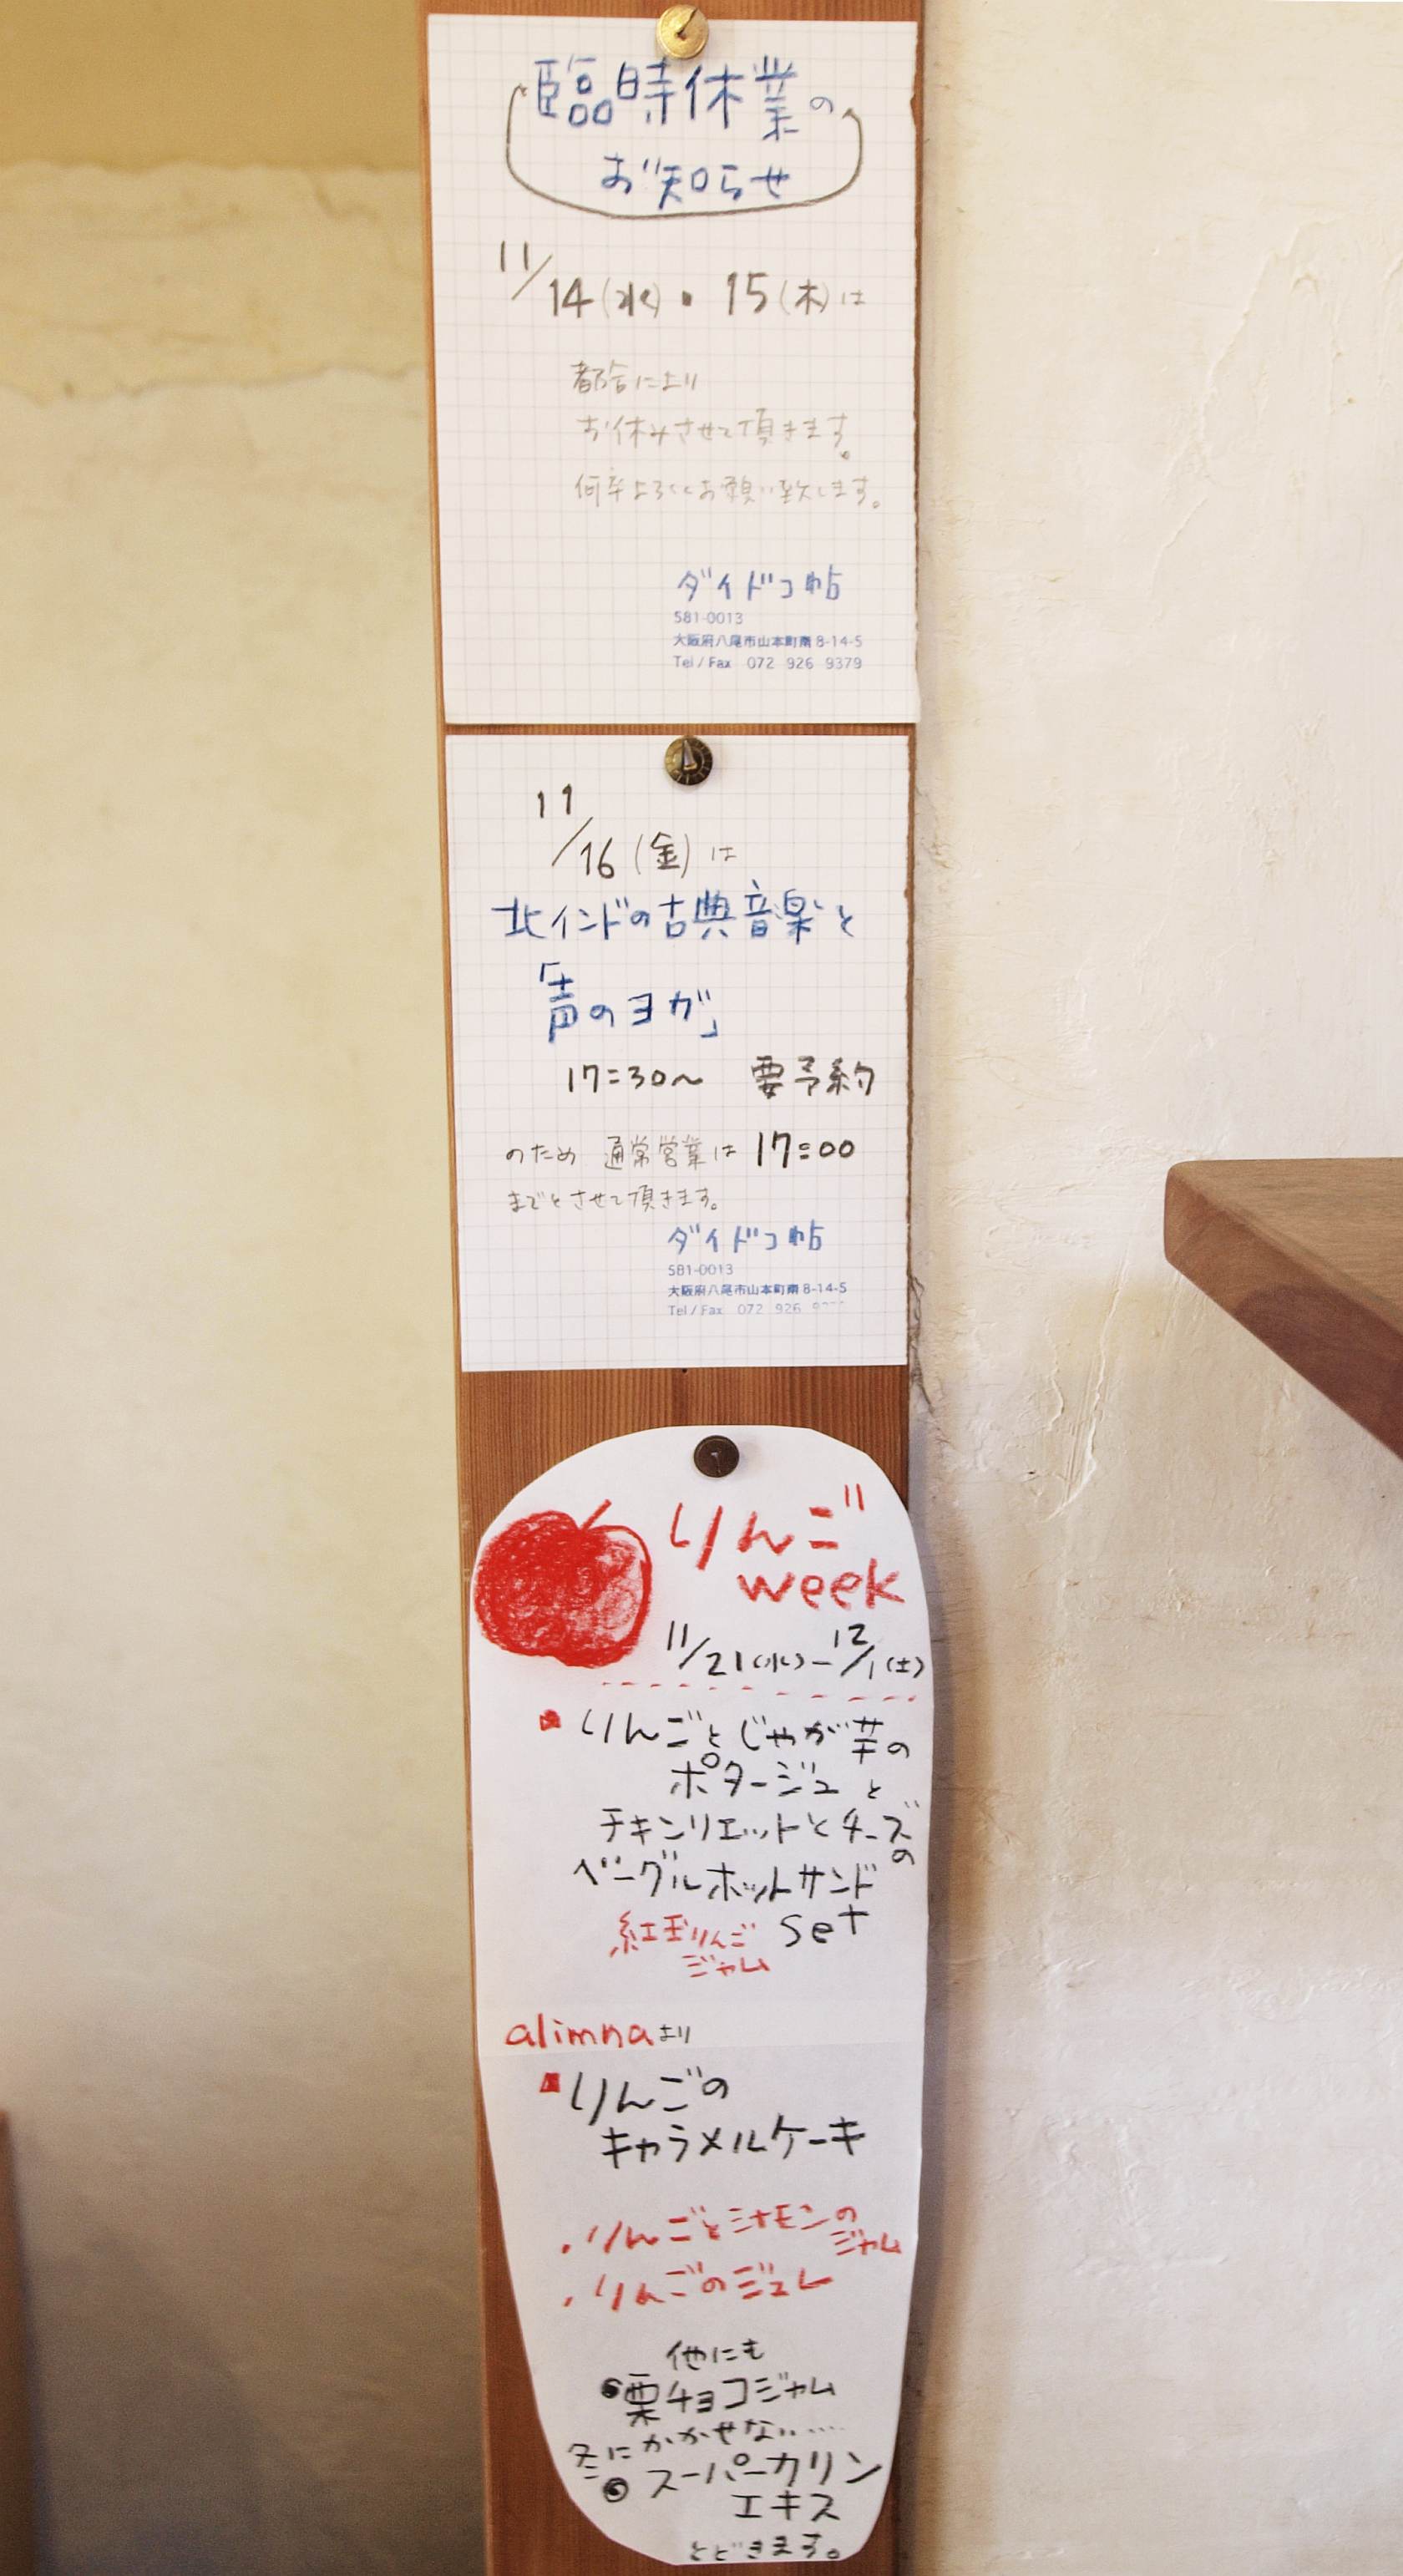 臨時休業の
お知らせ
11/14(水)・15(木)は
都合により
お休みさせて頂きます。
何卒よろしくお願い致します。
ダイドコ帖
581-0013
大阪府八尾市山本町南8-14-5
Tel/Fax 072 926 9379
11/16(金)は
北インドの古典音楽と
「声のヨガ」
17:30〜 要予約
のため 通常営業は 17:00
までとさせて頂きます。
ダイドコ帖
581-0013
大阪府八尾市山本町南8-14-5
Tel/Fax 072 926
りんご
week
11/21(水)-12/1(土)
りんごとじゃが芋の
ポタージュと
チキンリエットとチーズの
ベーグルホットサンド
set
紅玉りんご
ジャム
alimnaより
りんごの
キャラメルケーキ
・りんごとシナモンの
ジャム
・りんごのジュレ
他にも
栗チョコジャム
冬にかかせない……
スーパーカリン
エキス
とどきます。